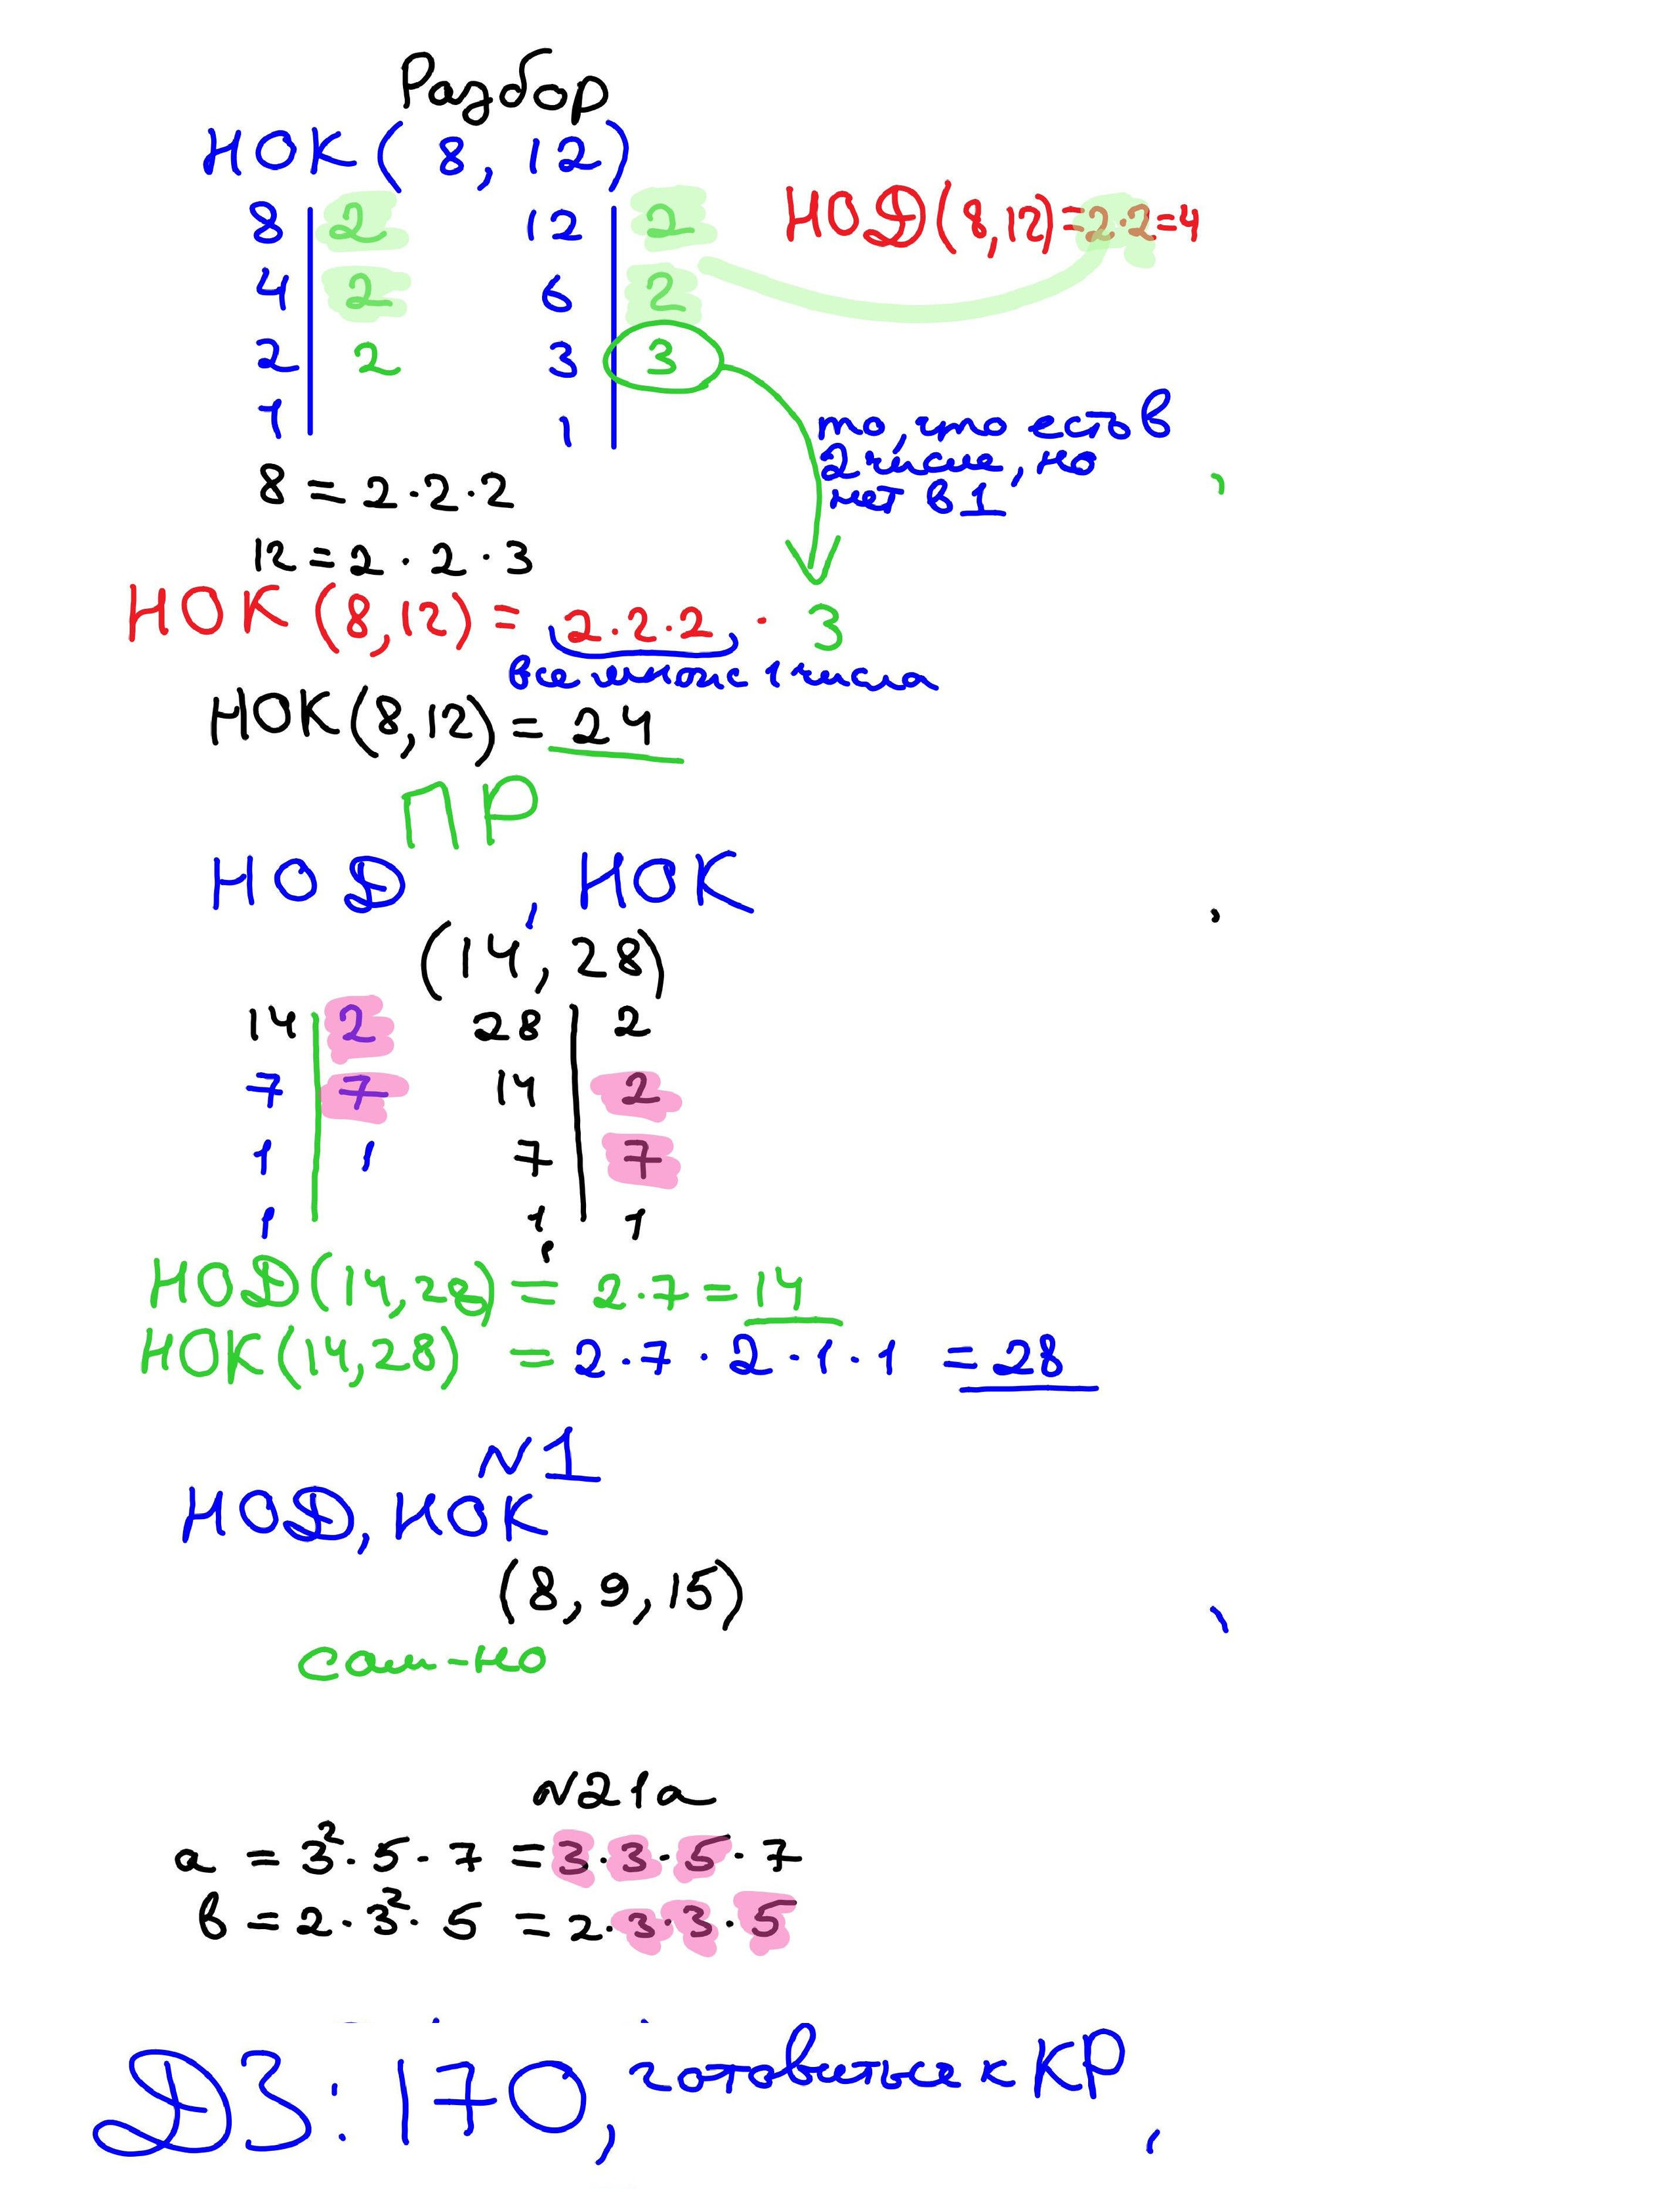 Разбор
НОК(8, 12)
8 | 2   12 | 2   НОД(8,12)=2·2=4
4 | 2   6 | 2
2 | 2   3 | 3
1 |   1 |
то, что есть в
2 числе, но
нет в 1
8 = 2·2·2
12 = 2 · 2 · 3
НОК(8,12) = 2·2·2 · 3
все множ 1 числа
НОК(8,12) = 24
ПР
НОД, НОК
(14, 28)
14 | 2   28 | 2
7 | 7   14 | 2
1 | 1   7 | 7
1 |   1 | 1
НОД(14,28) = 2·7=14
НОК(14,28) = 2·7·2·1·1 = 28
N1
НОД, НОК
(8, 9, 15)
сам-но
N21а
а = 3²·5·7 = 3·3·5·7
в = 2·3²·5 = 2·3·3·5
ДЗ: 170, готовиться к КР